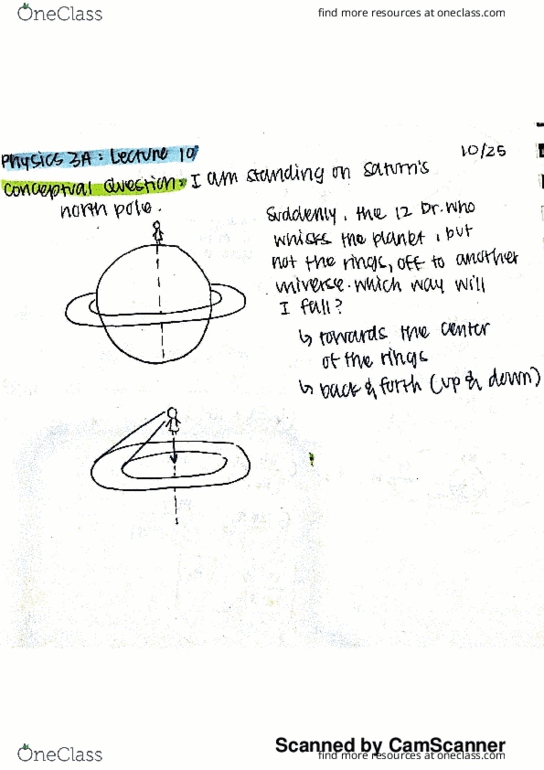 OneClass
find more resources at oneclass.com
Physics 3A: Lecture 10
10/25
Conceptual Question: I am standing on Saturn's
north pole.
Suddenly, the 12 Dr. Who
whisks the planet, but
not the rings, off to another
universe. Which way will
I fall?
↳ towards the center
of the rings
↳ back & forth (up & down)
Scanned by CamScanner
OneClass
find more resources at oneclass.com